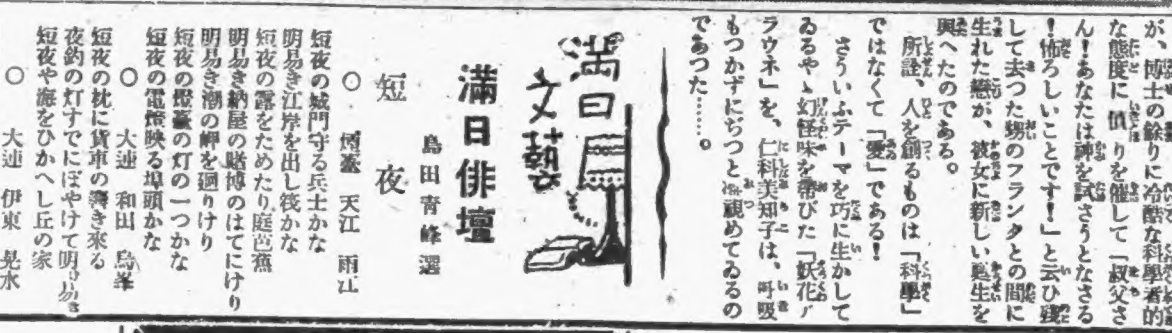 が、博士の餘りに冷酷な科學者的
な態度に憤りを催して「叔父さ
ん！あなたは神を試さうとなさる
！怖ろしいことです！」と云ひ残
して去つた甥のフランタとの間に
生れた戀が、彼女に新しい更生を
與へたのである。
所詮、人を創るものは「科學」
ではなくて「愛」である！
さういふテーマを巧に生かして
ゐるやゝ幻怪味を帶びた「妖花ア
ラウネ」を、仁科美知子は、呼吸
もつかずにぢつと視めてゐるの
であつた……。
満日
文藝
滿日俳壇
島田青峰選
短夜
○ 烟臺 天江 雨江
短夜の城門守る兵士かな
明易き江岸を出し筏かな
短夜の露をためたり庭芭蕉
明易き納屋の賭博のはてにけり
明易き潮の岬を廻りけり
短夜の燈臺の灯の一つかな
短夜の電燈映る埠頭かな
○ 大連 和田 烏峯
短夜の枕に貨車の響き來る
夜釣の灯すでにぼやけて明易き
短夜や海をひかへし丘の家
○ 大連 伊東 晃水